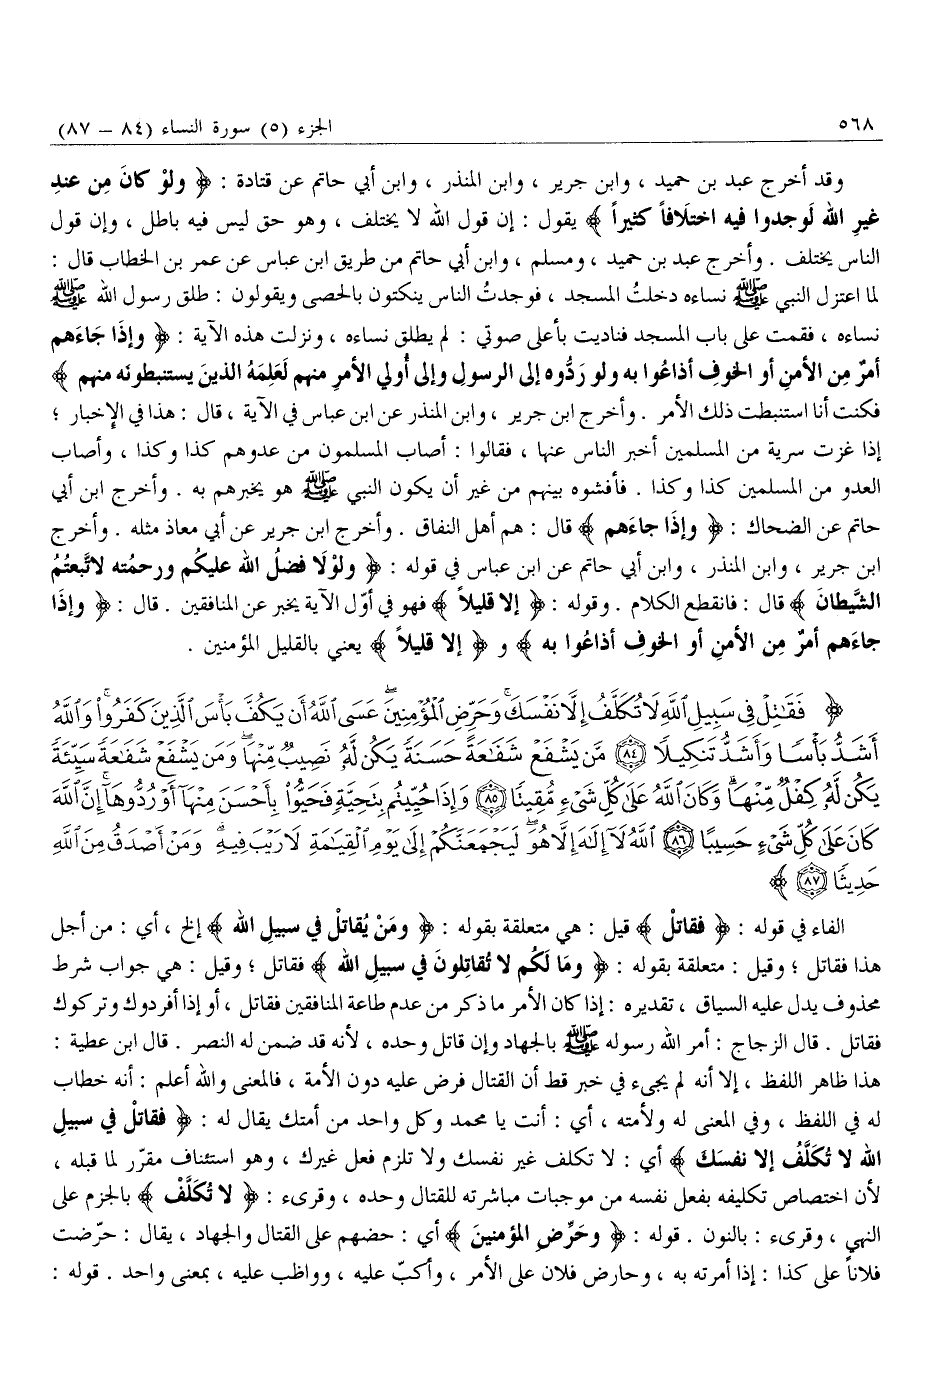 ٥٦٨ الجزء (٥) سورة النساء (٨٤ – ٨٧)
وقد أخرج عبد بن حميد ، وابن جرير ، وابن المنذر ، وابن أبي حاتم عن قتادة : ﴿ ولوْ كانَ مِن عندِ
غيرِ الله لَوجدوا فيه اختلَافاً كثيراً ﴾ يقول : إن قول الله لا يختلف ، وهو حق ليس فيه باطل ، وإن قول
الناس يختلف . وأخرج عبد بن حميد ، ومسلم ، وابن أبي حاتم من طريق ابن عباس عن عمر بن الخطاب قال :
لما اعتزل النبي ﷺ نساءه دخلتُ المسجد ، فوجدتُ الناس ينكتون بالحصى ويقولون : طلق رسول الله ﷺ
نساءه ، فقمت على باب المسجد فناديت بأعلى صوتي : لم يطلق نساءه ، ونزلت هذه الآية : ﴿ وإذَا جاءَهم
أمرٌ مِن الأمنِ أو الخوفِ أذاعُوا به ولو ردُّوه إلى الرسول وإلى أُولي الأمرِ منهم لَعَلِمَهُ الذينَ يستنبطونَه منهم ﴾
فكنت أنا استنبطت ذلك الأمر . وأخرج ابن جرير ، وابن المنذر عن ابن عباس في الآية ، قال : هذا في الإخبار ؛
إذا غزت سرية من المسلمين أخبر الناس عنها ، فقالوا : أصاب المسلمون من عدوهم كذا وكذا ، وأصاب
العدو من المسلمين كذا وكذا . فأفشوه بينهم من غير أن يكون النبي ﷺ هو يخبرهم به . وأخرج ابن أبي
حاتم عن الضحاك : ﴿ وإذَا جاءَهم ﴾ قال : هم أهل النفاق . وأخرج ابن جرير عن أبي معاذ مثله . وأخرج
ابن جرير ، وابن المنذر ، وابن أبي حاتم عن ابن عباس في قوله : ﴿ ولوْلَا فضلُ الله عليكُم ورحمُته لاتَّبعتُمُ
الشَّيطانَ ﴾ قال : فانقطع الكلام . وقوله : ﴿ إلا قليلاً ﴾ فهو في أوّل الآية يخبر عن المنافقين . قال : ﴿ وإذَا
جاءَهم أمرٌ مِن الأمنِ أو الخوفِ أذاعُوا به ﴾ و ﴿ إلا قليلاً ﴾ يعني بالقليل المؤمنين .
﴿ فَقَٰتِلۡ فِي سَبِيلِ ٱللَّهِ لَا تُكَلَّفُ إِلَّا نَفۡسَكَۚ وَحَرِّضِ ٱلۡمُؤۡمِنِينَۖ عَسَى ٱللَّهُ أَن يَكُفَّ بَأۡسَ ٱلَّذِينَ كَفَرُواْۚ وَٱللَّهُ
أَشَدُّ بَأۡسٗا وَأَشَدُّ تَنكِيلٗا ﴿٨٤﴾ مَّن يَشۡفَعۡ شَفَٰعَةً حَسَنَةٗ يَكُن لَّهُۥ نَصِيبٞ مِّنۡهَاۖ وَمَن يَشۡفَعۡ شَفَٰعَةٗ سَيِّئَةٗ
يَكُن لَّهُۥ كِفۡلٞ مِّنۡهَاۗ وَكَانَ ٱللَّهُ عَلَىٰ كُلِّ شَيۡءٖ مُّقِيتٗا ﴿٨٥﴾ وَإِذَا حُيِّيتُم بِتَحِيَّةٖ فَحَيُّواْ بِأَحۡسَنَ مِنۡهَآ أَوۡ رُدُّوهَآۗ إِنَّ ٱللَّهَ
كَانَ عَلَىٰ كُلِّ شَيۡءٍ حَسِيبًا ﴿٨٦﴾ ٱللَّهُ لَآ إِلَٰهَ إِلَّا هُوَۚ لَيَجۡمَعَنَّكُمۡ إِلَىٰ يَوۡمِ ٱلۡقِيَٰمَةِ لَا رَيۡبَ فِيهِۗ وَمَنۡ أَصۡدَقُ مِنَ ٱللَّهِ
حَدِيثٗا ﴿٨٧﴾ ﴾
الفاء في قوله : ﴿ فقاتلْ ﴾ قيل : هي متعلقة بقوله : ﴿ ومَنْ يُقاتلْ في سبيلِ الله ﴾ إلخ ، أي : من أجل
هذا فقاتل ؛ وقيل : متعلقة بقوله : ﴿ ومَا لَكُم لا تُقاتِلونَ في سبيلِ الله ﴾ فقاتل ؛ وقيل : هي جواب شرط
محذوف يدل عليه السياق ، تقديره : إذا كان الأمر ما ذكر من عدم طاعة المنافقين فقاتل ، أو إذا أفردوك وتركوك
فقاتل . قال الزجاج : أمر الله رسوله ﷺ بالجهاد وإن قاتل وحده ، لأنه قد ضمن له النصر . قال ابن عطية :
هذا ظاهر اللفظ ، إلا أنه لم يجىء في خبر قط أن القتال فرض عليه دون الأمة ، فالمعنى والله أعلم : أنه خطاب
له في اللفظ ، وفي المعنى له ولأمته ، أي : أنت يا محمد وكل واحد من أمتك يقال له : ﴿ فقاتلْ في سبيلِ
الله لا تُكلَّفُ إلا نفسَكَ ﴾ أي : لا تكلف غير نفسك ولا تلزم فعل غيرك ، وهو استئناف مقرّر لما قبله ،
لأن اختصاص تكليفه بفعل نفسه من موجبات مباشرته للقتال وحده ، وقرىء : ﴿ لا تُكلَّفْ ﴾ بالجزم على
النهي ، وقرىء : بالنون . قوله : ﴿ وحَرِّضِ المؤمنينَ ﴾ أي : حضهم على القتال والجهاد ، يقال : حرّضت
فلاناً على كذا : إذا أمرته به ، وحارض فلان على الأمر ، وأكبّ عليه ، وواظب عليه ، بمعنى واحد . قوله :